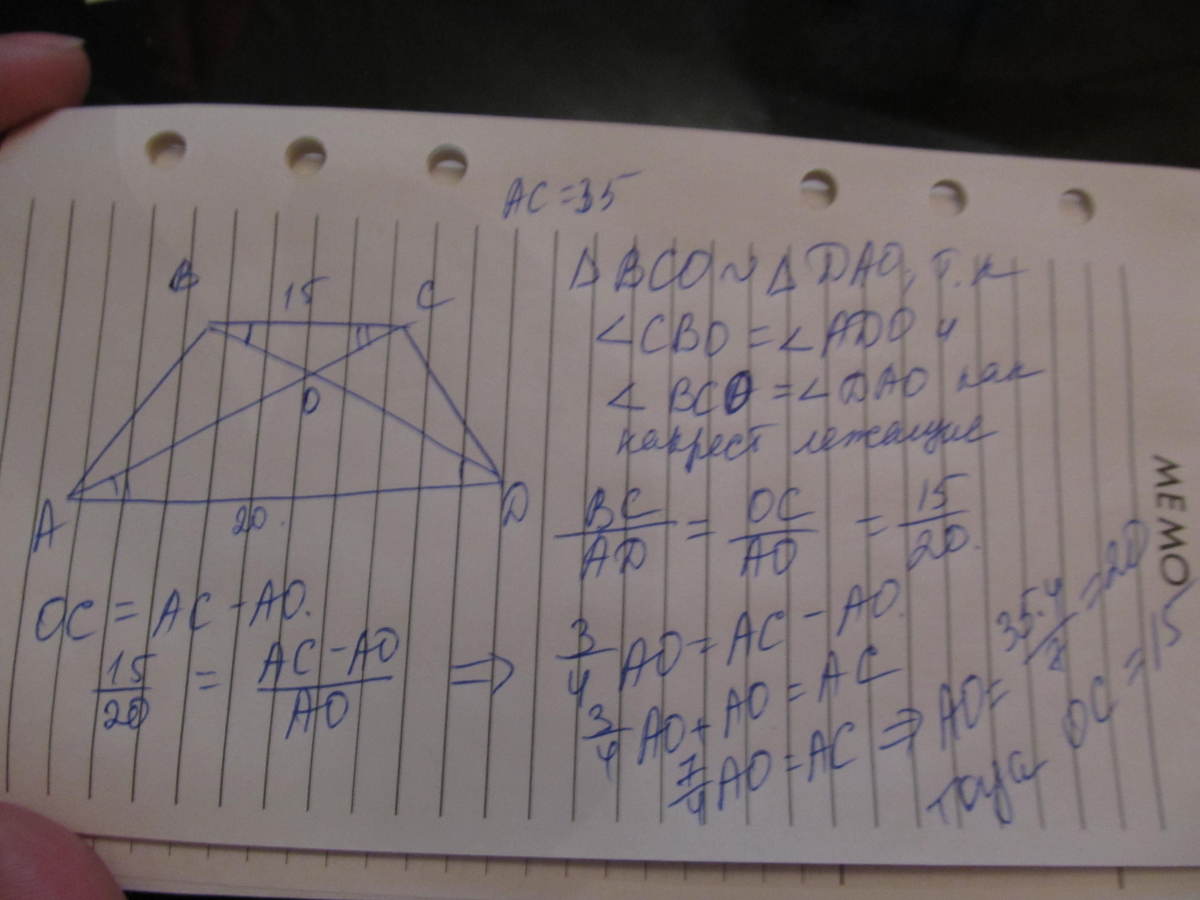 AC = 35
B 15 C
O
A 20. D
Δ BCO ~ Δ DAO, т.к
∠CBO = ∠ADO и
∠BCO = ∠DAO как
накрест лежащие
BC/AD = OC/AO = 15/20.
OC = AC - AO.
15/20 = (AC - AO)/AO ⇒
3/4 AO = AC - AO.
3/4 AO + AO = AC
7/4 AO = AC ⇒ AO = 35·4/7 = 20
тогда OC = 15
MEMO